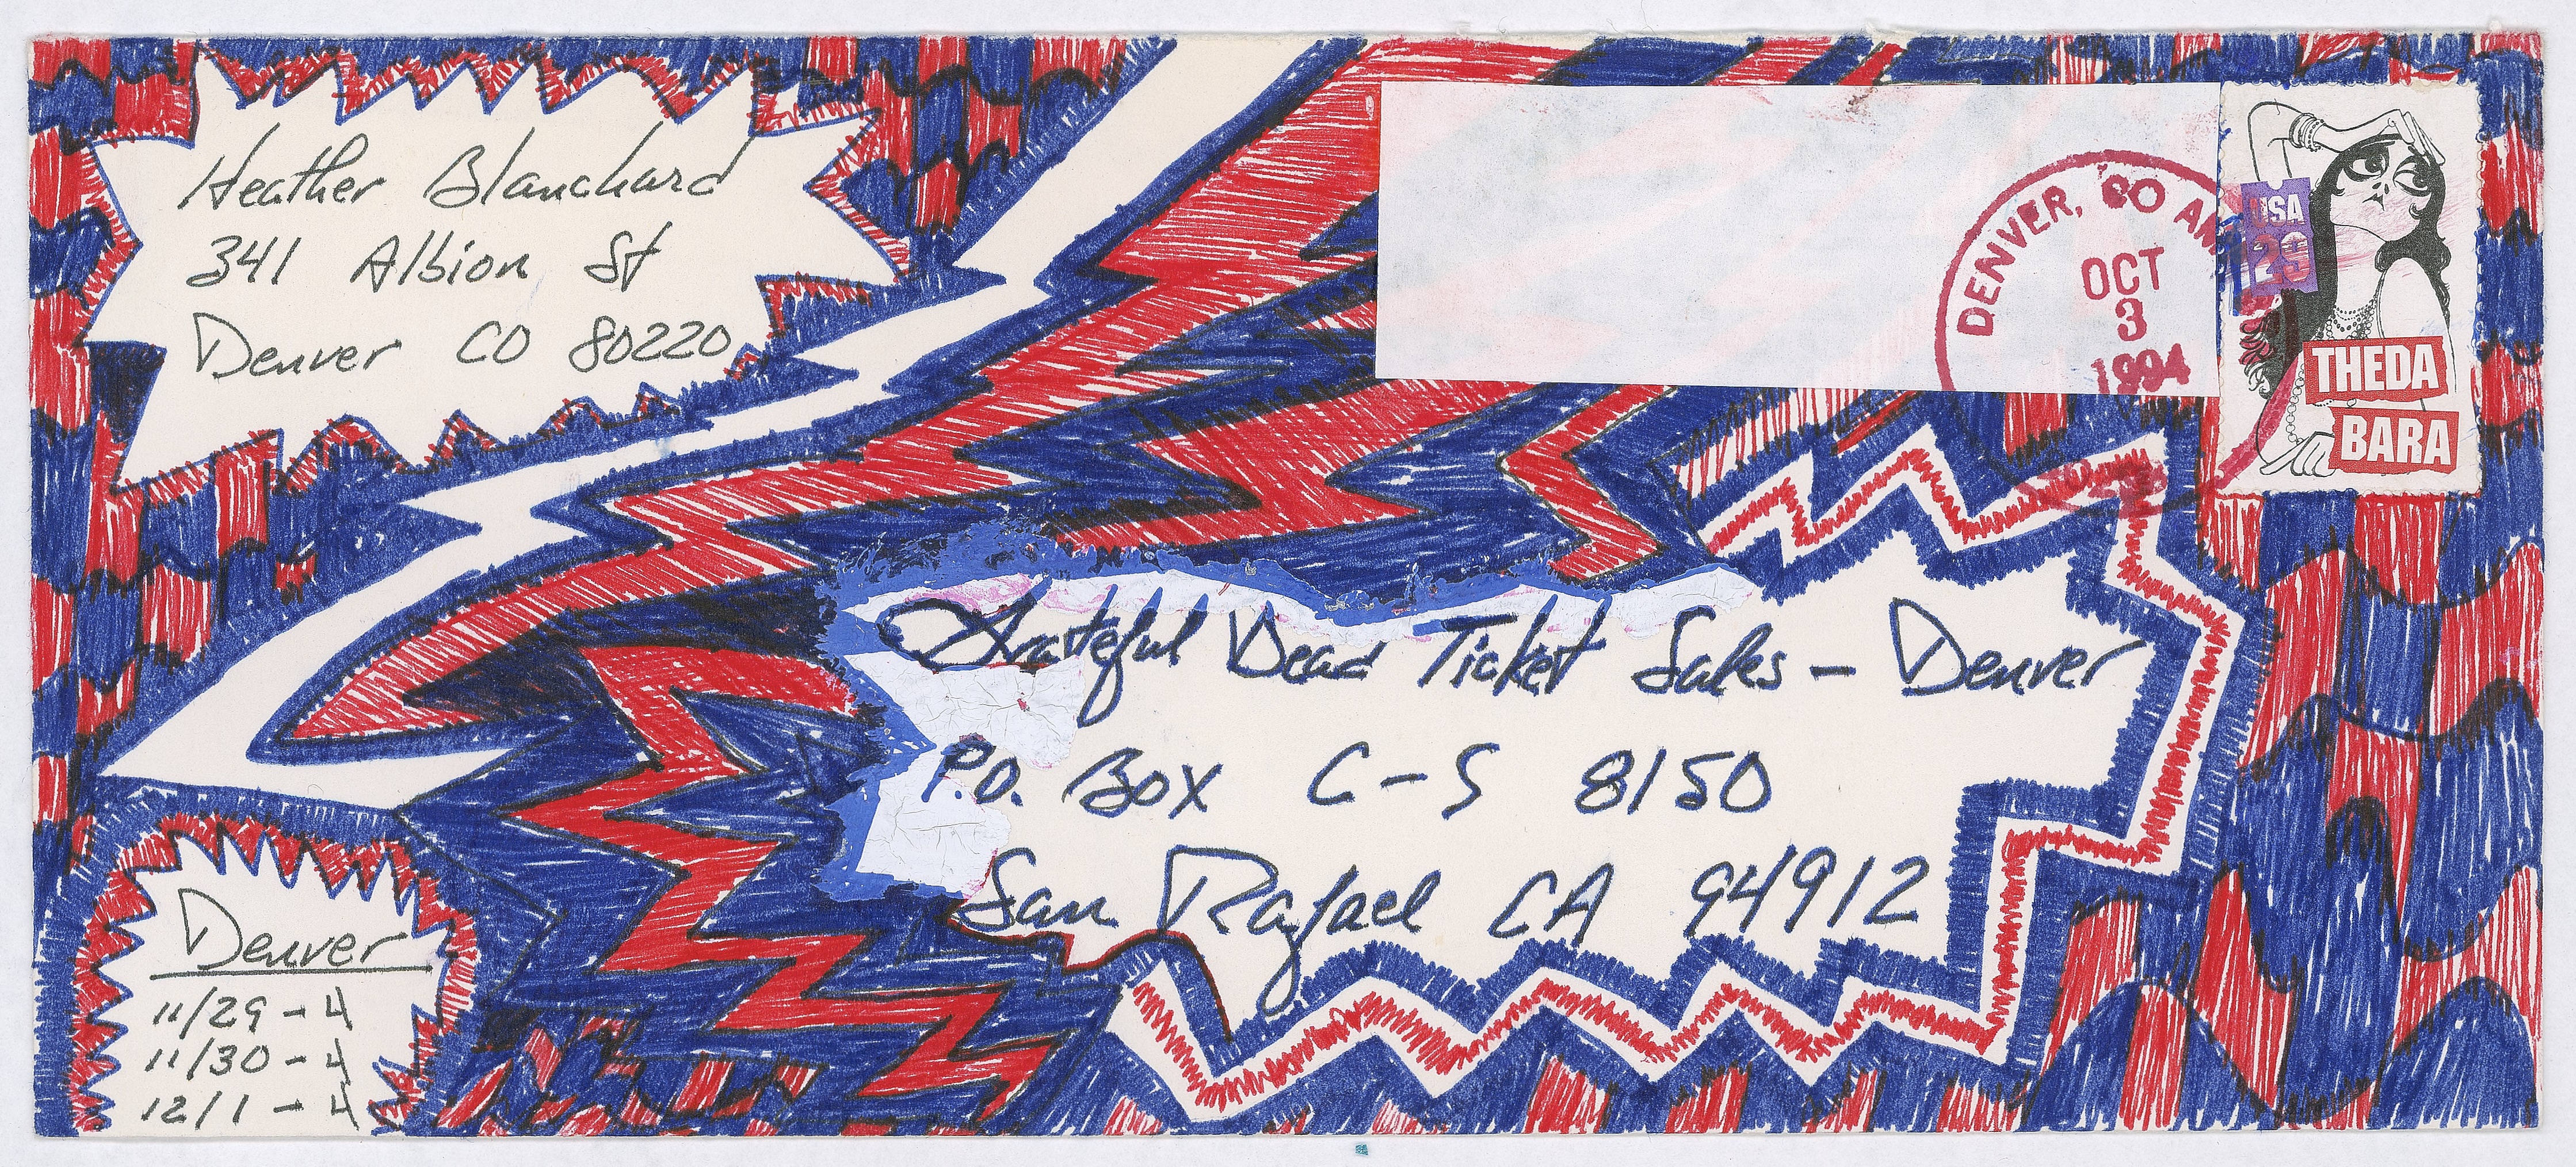 Heather Blanchard
341 Albion St
Denver CO 80220
DENVER, CO
OCT
3
1994
USA
29
THEDA
BARA
Grateful Dead Ticket Sales - Denver
P.O. Box C-S 8150
San Rafael CA 94912
Denver
11/29 - 4
11/30 - 4
12/1 - 4